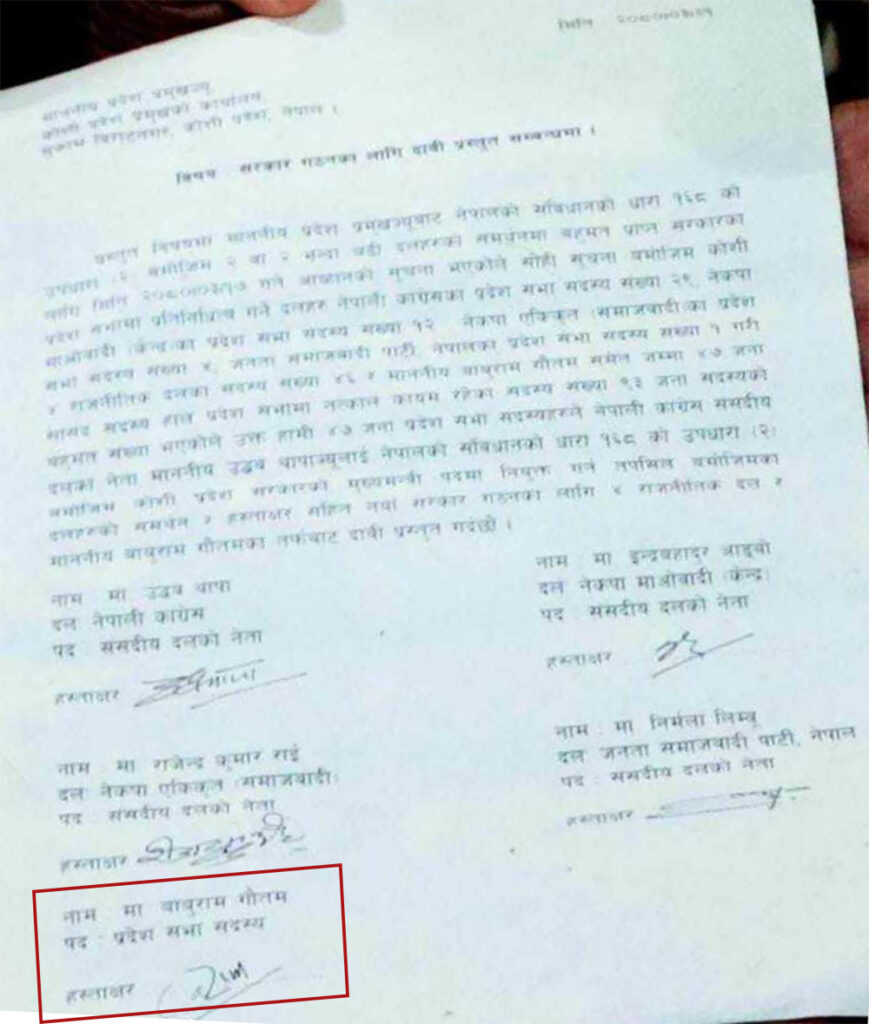 मिति २०८०।०३।२१
माननीय प्रदेश प्रमुखज्यू,
कोशी प्रदेश प्रमुखको कार्यालय,
मुकाम बिराटनगर, कोशी प्रदेश, नेपाल ।
विषय : सरकार गठनका लागि दावी प्रस्तुत सम्बन्धमा ।
प्रस्तुत विषयमा माननीय प्रदेश प्रमुखज्यूबाट नेपालको संविधानको धारा १६८ को
उपधारा (२) बमोजिम २ वा २ भन्दा बढी दलहरुको समर्थनमा बहुमत प्राप्त सरकारका
लागि मिति २०८०।०३।१७ गते आव्हानको सूचना भएकोले सोही सूचना बमोजिम कोशी
प्रदेश सभामा प्रतिनिधित्व गर्ने दलहरु नेपाली कांग्रेसका प्रदेश सभा सदस्य संख्या २९, नेकपा
माओवादी (केन्द्र)का प्रदेश सभा सदस्य संख्या १२, नेकपा एकिकृत (समाजवादी)का प्रदेश
सभा सदस्य संख्या ४, जनता समाजवादी पार्टी, नेपालका प्रदेश सभा सदस्य संख्या १ गरी
४ राजनीतिक दलका सदस्य संख्या ४६ र माननीय बाबुराम गौतम समेत जम्मा ४७ जना
सांसद सदस्य हाल प्रदेश सभामा तत्काल कायम रहेका सदस्य संख्या ९३ जना सदस्यको
बहुमत संख्या भएकोले उक्त हामी ४७ जना प्रदेश सभा सदस्यहरुले नेपाली कांग्रेस संसदीय
दलका नेता माननीय उद्धव थापाज्यूलाई नेपालको संविधानको धारा १६८ को उपधारा (२)
बमोजिम कोशी प्रदेश सरकारको मुख्यमन्त्री पदमा नियुक्त गर्न तपसिल बमोजिमका
दलहरुको समर्थन र हस्ताक्षर सहित नयाँ सरकार गठनका लागि ४ राजनीतिक दल र
माननीय बाबुराम गौतमका तर्फबाट दावी प्रस्तुत गर्दछौं ।
नाम : मा उद्धव थापा
दल: नेपाली कांग्रेस
पद : संसदीय दलको नेता
हस्ताक्षर
नाम : मा इन्द्रबहादुर आङबो
दल: नेकपा माओवादी (केन्द्र)
पद : संसदीय दलको नेता
हस्ताक्षर
नाम : मा राजेन्द्र कुमार राई
दल: नेकपा एकिकृत (समाजवादी)
पद : संसदीय दलको नेता
हस्ताक्षर
नाम : मा निर्मला लिम्बू
दल: जनता समाजवादी पार्टी, नेपाल
पद : संसदीय दलको नेता
हस्ताक्षर
नाम : मा बाबुराम गौतम
पद : प्रदेश सभा सदस्य
हस्ताक्षर